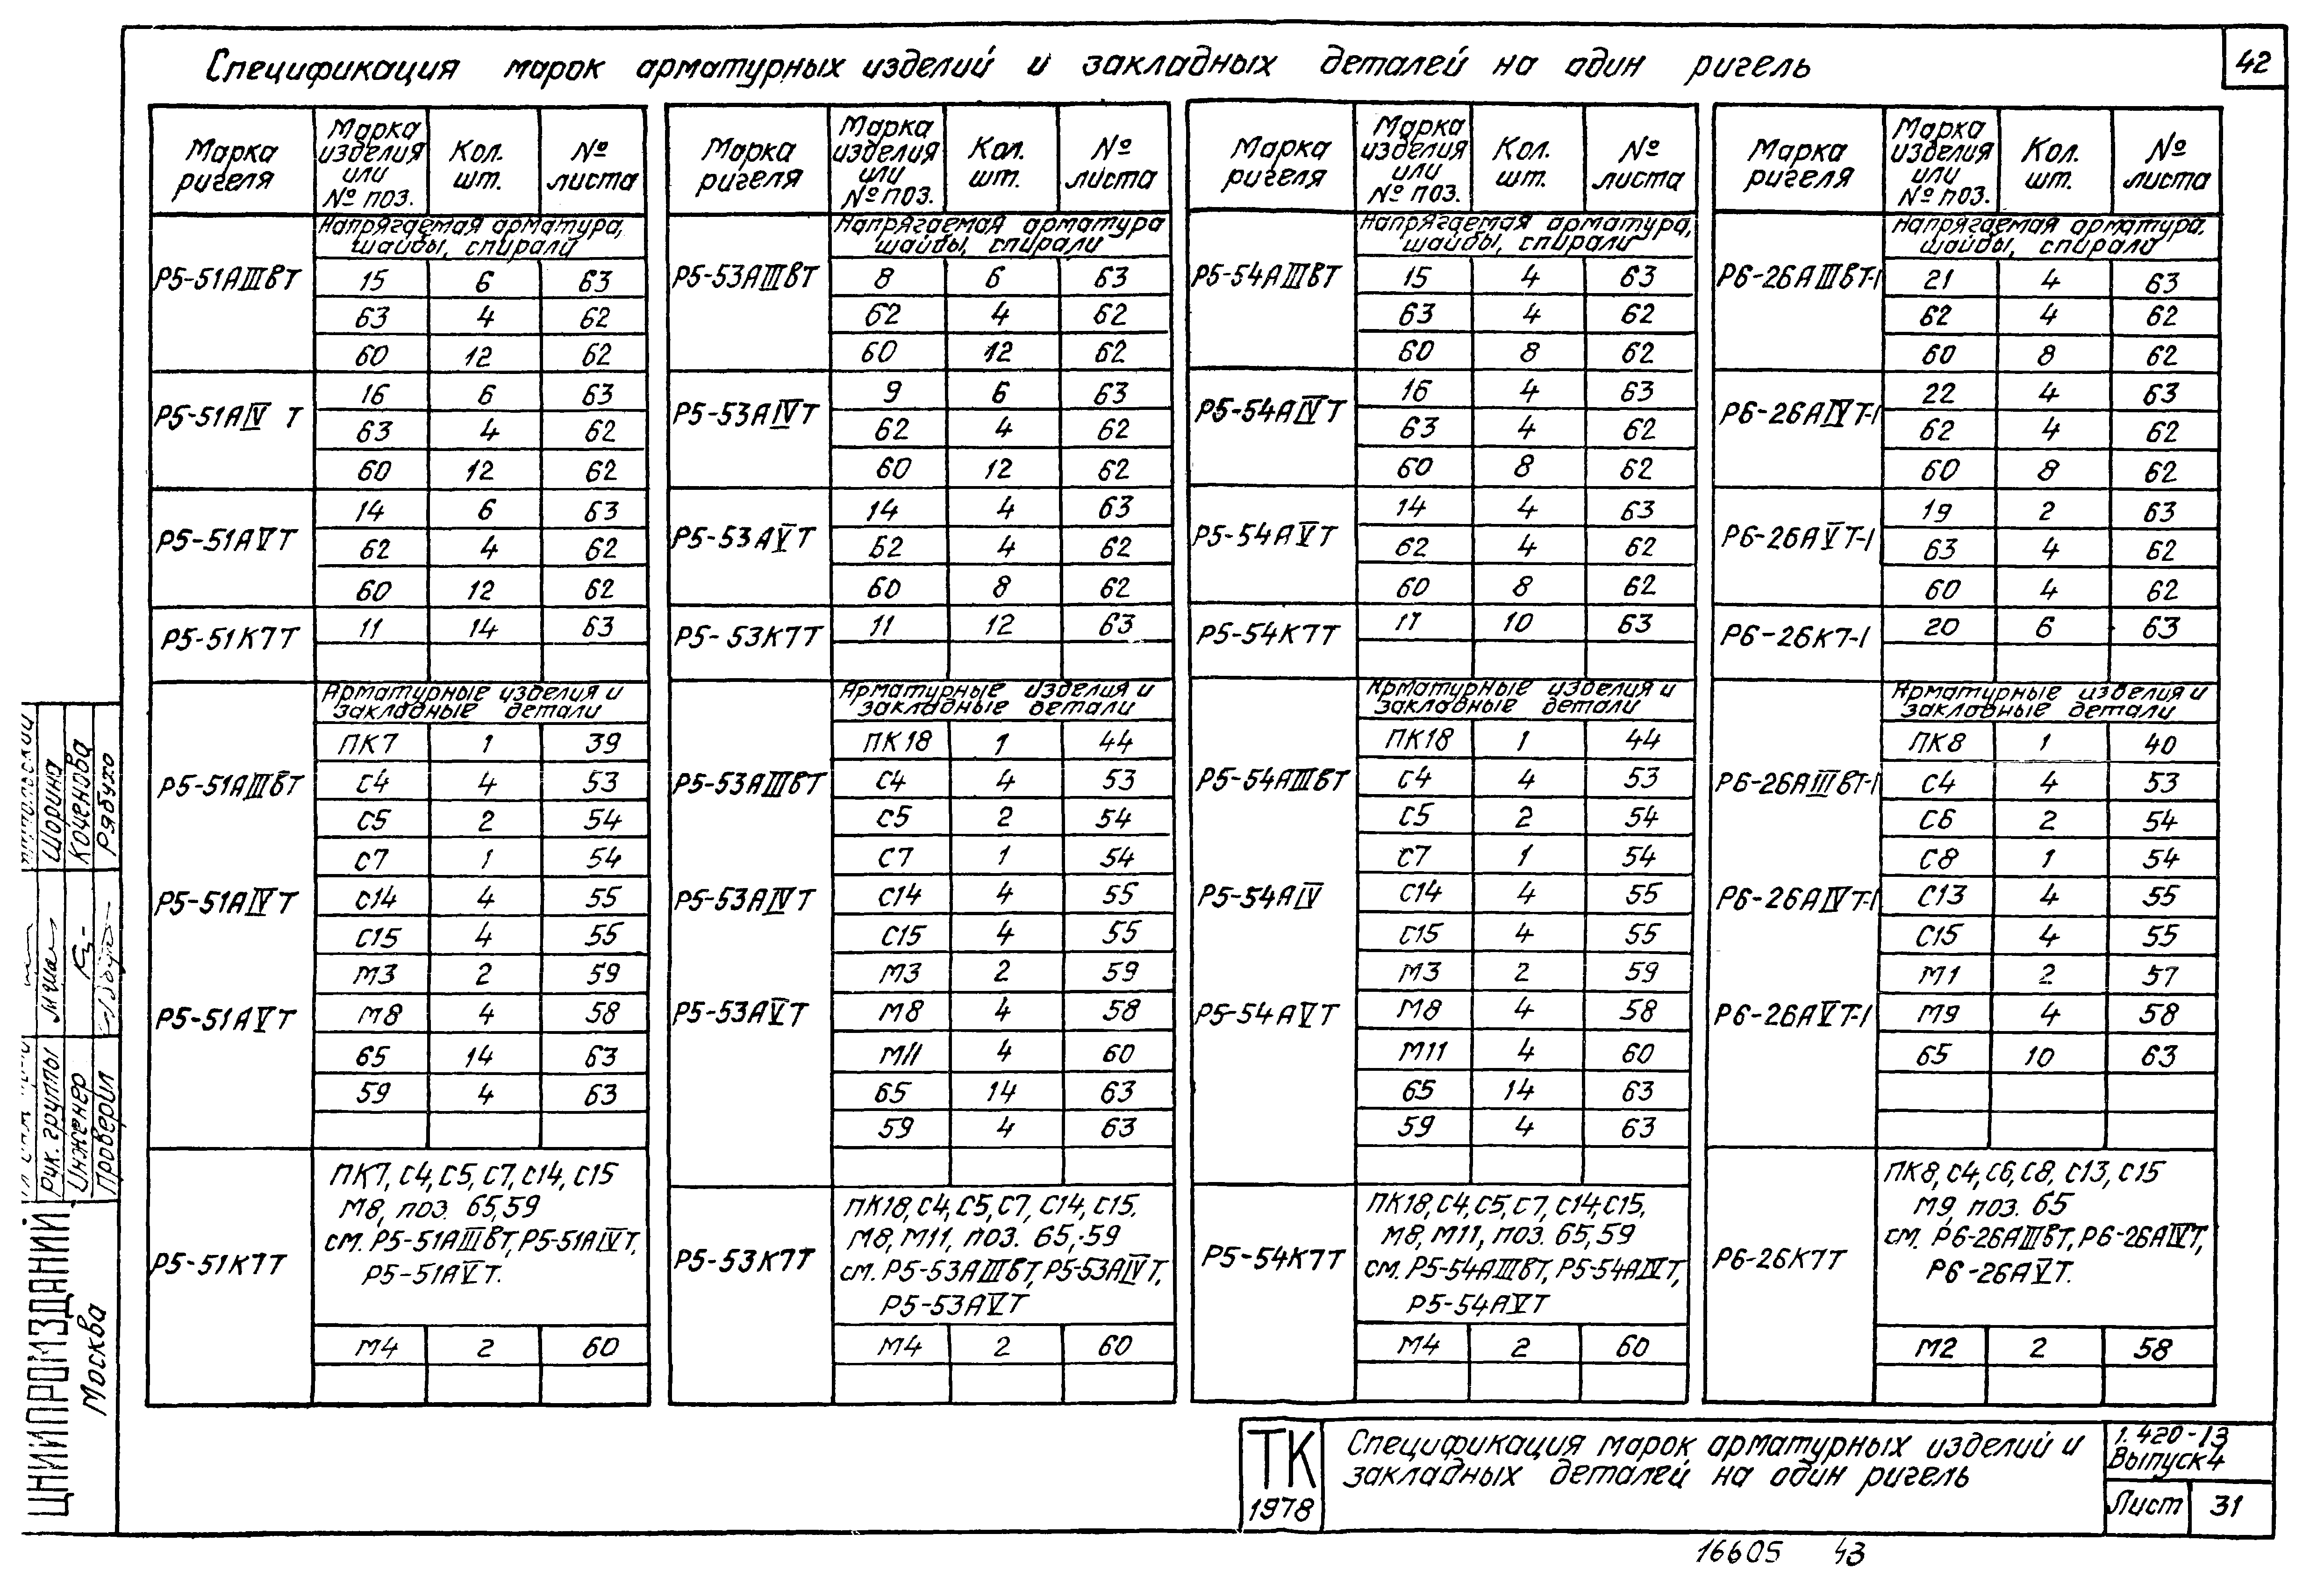 Спецификация марок арматурных изделий и закладных деталей на один ригель
42
Марка ригеля | Марка изделия или № поз. | Кол. шт. | № листа
Напрягаемая арматура, шайбы, спирали
Р5-51АIIIВТ | 15 | 6 | 63
63 | 4 | 62
60 | 12 | 62
Р5-51АIV Т | 16 | 6 | 63
63 | 4 | 62
60 | 12 | 62
Р5-51АVТ | 14 | 6 | 63
62 | 4 | 62
60 | 12 | 62
Р5-51К7Т | 11 | 14 | 63
Арматурные изделия и закладные детали
Р5-51АIIIВТ
Р5-51АIVТ
Р5-51АVТ
ПК7 | 1 | 39
С4 | 4 | 53
С5 | 2 | 54
С7 | 1 | 54
С14 | 4 | 55
С15 | 4 | 55
М3 | 2 | 59
М8 | 4 | 58
65 | 14 | 63
59 | 4 | 63
Р5-51К7Т
ПК7, С4, С5, С7, С14, С15
М8, поз. 65,59
см. Р5-51АIIIВТ, Р5-51АIVТ,
Р5-51АVТ.
М4 | 2 | 60
Марка ригеля | Марка изделия или № поз. | Кол. шт. | № листа
Напрягаемая арматура шайбы, спирали
Р5-53АIIIВТ | 8 | 6 | 63
62 | 4 | 62
60 | 12 | 62
Р5-53АIVТ | 9 | 6 | 63
62 | 4 | 62
60 | 12 | 62
Р5-53АVТ | 14 | 4 | 63
62 | 4 | 62
60 | 8 | 62
Р5-53К7Т | 11 | 12 | 63
Арматурные изделия и закладные детали
Р5-53АIIIВТ
Р5-53АIVТ
Р5-53АVТ
ПК18 | 1 | 44
С4 | 4 | 53
С5 | 2 | 54
С7 | 1 | 54
С14 | 4 | 55
С15 | 4 | 55
М3 | 2 | 59
М8 | 4 | 58
М11 | 4 | 60
65 | 14 | 63
59 | 4 | 63
Р5-53К7Т
ПК18, С4, С5, С7, С14, С15,
М8, М11, поз. 65,59
см. Р5-53АIIIВТ, Р5-53АIVТ,
Р5-53АVТ
М4 | 2 | 60
Марка ригеля | Марка изделия или № поз. | Кол. шт. | № листа
Напрягаемая арматура, шайбы, спирали
Р5-54АIIIВТ | 15 | 4 | 63
63 | 4 | 62
60 | 8 | 62
Р5-54АIVТ | 16 | 4 | 63
63 | 4 | 62
60 | 8 | 62
Р5-54АVТ | 14 | 4 | 63
62 | 4 | 62
60 | 8 | 62
Р5-54К7Т | 11 | 10 | 63
Арматурные изделия и закладные детали
Р5-54АIIIВТ
Р5-54АIV
Р5-54АVТ
ПК18 | 1 | 44
С4 | 4 | 53
С5 | 2 | 54
С7 | 1 | 54
С14 | 4 | 55
С15 | 4 | 55
М3 | 2 | 59
М8 | 4 | 58
М11 | 4 | 60
65 | 14 | 63
59 | 4 | 63
Р5-54К7Т
ПК18, С4, С5, С7, С14, С15,
М8, М11, поз. 65,59
см. Р5-54АIIIВТ, Р5-54АIVТ,
Р5-54АVТ
М4 | 2 | 60
Марка ригеля | Марка изделия или № поз. | Кол. шт. | № листа
Напрягаемая арматура, шайбы, спирали
Р6-26АIIIВТ-1 | 21 | 4 | 63
62 | 4 | 62
60 | 8 | 62
Р6-26АIVТ-1 | 22 | 4 | 63
62 | 4 | 62
60 | 8 | 62
Р6-26АVТ-1 | 19 | 2 | 63
63 | 4 | 62
60 | 4 | 62
Р6-26К7-1 | 20 | 6 | 63
Арматурные изделия и закладные детали
Р6-26АIIIВТ-1
Р6-26АIVТ-1
Р6-26АVТ-1
ПК8 | 1 | 40
С4 | 4 | 53
С6 | 2 | 54
С8 | 1 | 54
С13 | 4 | 55
С15 | 4 | 55
М1 | 2 | 57
М9 | 4 | 58
65 | 10 | 63
Р6-26К7Т
ПК8, С4, С6, С8, С13, С15
М9, поз. 65
см. Р6-26АIIIВТ, Р6-26АIVТ,
Р6-26АVТ.
М2 | 2 | 58
ТК
1978
Спецификация марок арматурных изделий и
закладных деталей на один ригель
1.420-13
Выпуск 4
Лист 31
16605 43
ЦНИИПРОМЗДАНИЙ
Москва
Рук. группы Шорина
Инженер Коченова
Проверил Рябухо